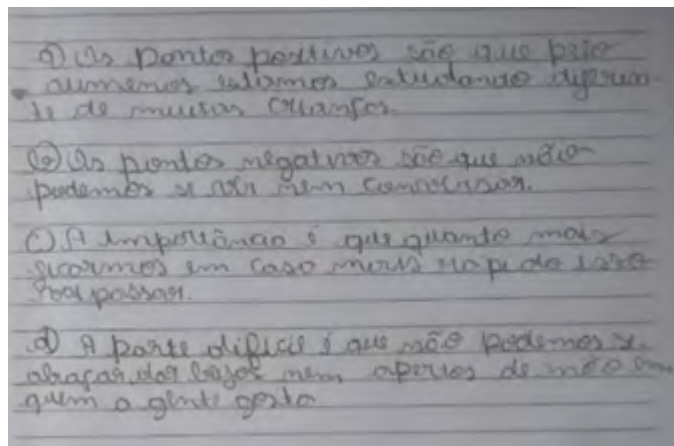 a) Os pontos positivos são que pelo
aumenos estamos estudando diferen-
te de muitas crianças.
b) Os pontos negativos são que não
podemos se nem conversar.
c) A importância é que quanto mais
ficarmos em casa mais rapido isso
vai passar.
d) A parte dificil é que não podemos se
abraçar, dar beijos nem apertos de mão em
quem a gente gosta